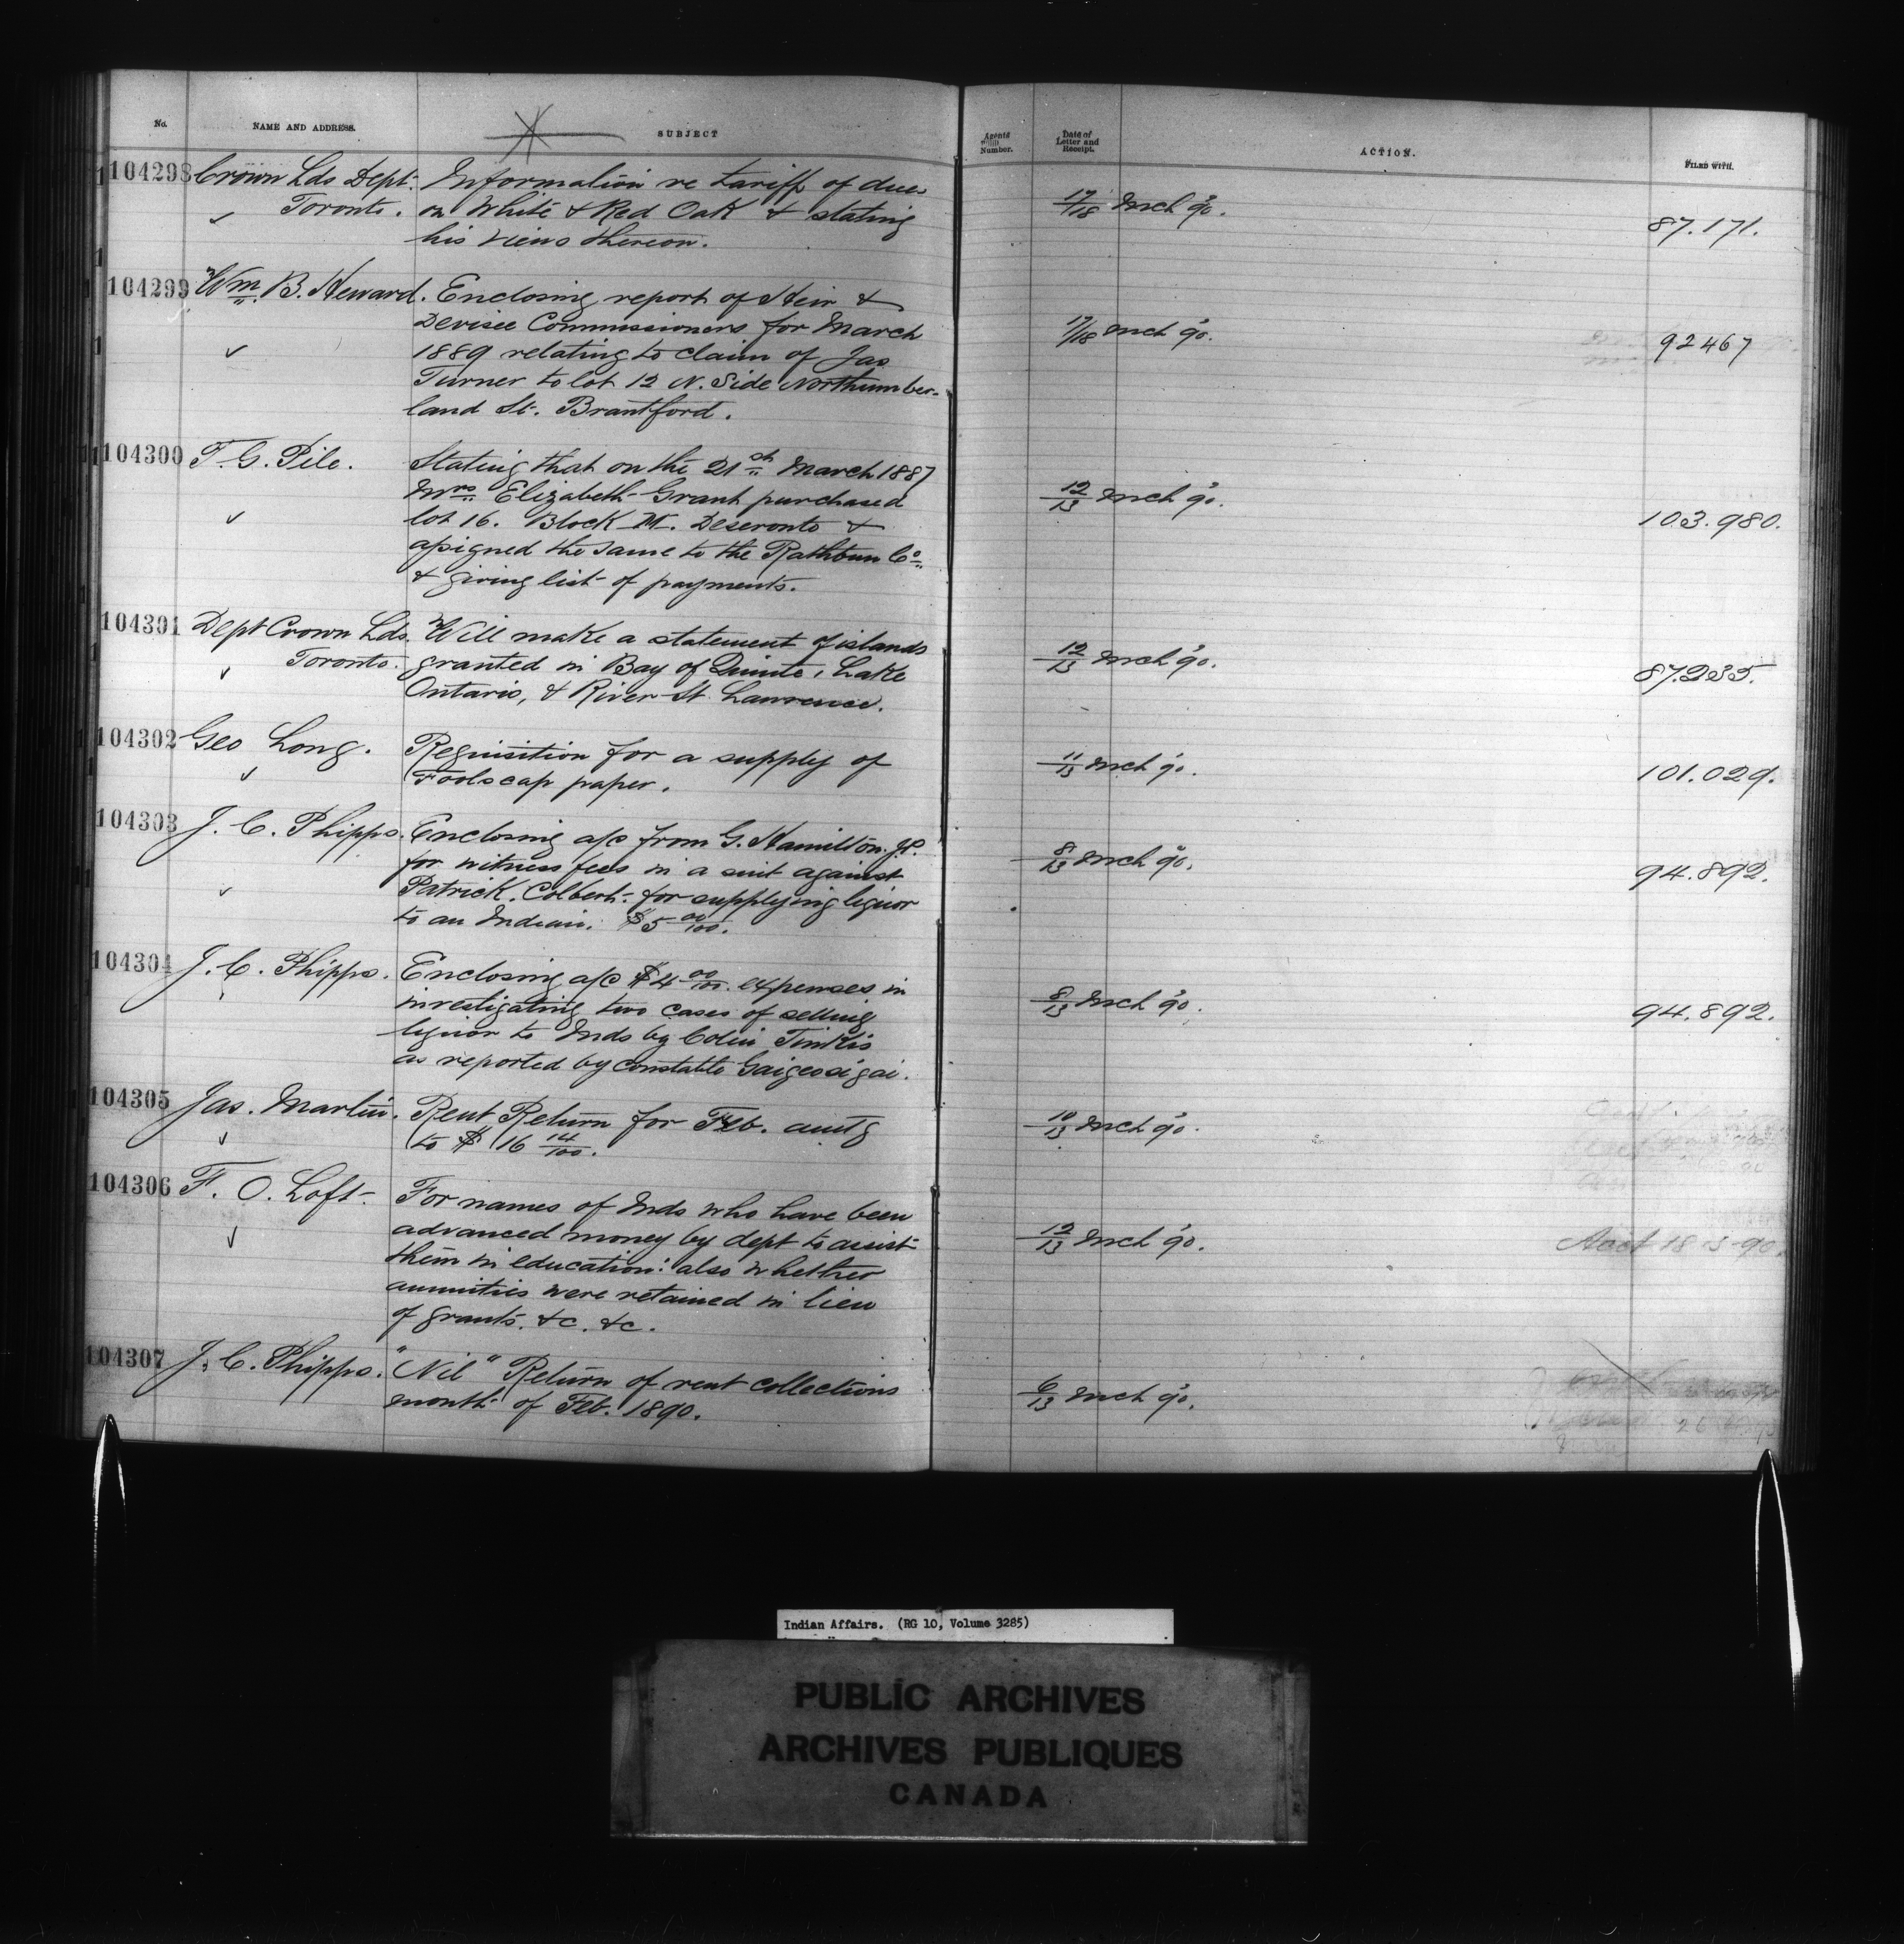 No. NAME AND ADDRESS. SUBJECT Agents Number. Date of Letter and Receipt. ACTION. FILED WITH.
104298 Crown Lds Dept. Information re tariff of dues
Toronto. on White & Red Oak & stating 17/18 Mch 90. 87.171.
his views thereon.
104299 Wm. B. Heward. Enclosing report of Heir &
Devisee Commissioners for March 17/18 Mch 90. 92467
1889 relating to claim of Jas
Turner to lot 12 N. Side Northumber-
land St. Brantford.
104300 T. G. Pile. Stating that on the 21st March 1887
Mrs Elizabeth Grant purchased 12/13 Mch 90. 103.980.
lot 16. Block Deseronto &
assigned the same to the Rathbun Co
& giving list of payments.
104301 Dept Crown Lds. Will make a statement of islands
Toronto. granted in Bay of Quinte, Lake 12/13 Mch 90. 87.235.
Ontario, & River St. Lawrence.
104302 Geo Long. Requisition for a supply of 11/13 Mch 90. 101.029.
Foolscap paper.
104303 J. C. Phipps. Enclosing a/c from G. Hamilton. J.P.
for witness fees in a suit against 8/13 Mch 90. 94.892.
Patrick. Colbert. for supplying liquor
to an Indian. $5 00/100.
104304 J. C. Phipps. Enclosing a/c $4 00/100. expenses in
investigating two cases of selling 8/13 Mch 90. 94.892.
liquor to Inds by Colin Tinkis
as reported by constable Gaigeosigai.
104305 Jas. Martin. Rent Return for Feb. amtg 10/13 Mch 90.
to $ 16 14/100.
104306 F. O. Loft. For names of Inds who have been
advanced money by dept to assist 12/13 Mch 90. Acct 18-3-90.
them in education: also whether
annuities were retained in lieu
of grants. &c. &c.
104307 J. C. Phipps. "Nil" Return of rent collections 6/13 Mch 90.
month of Feb. 1890.
Indian Affairs. (RG 10, Volume 3285)
PUBLIC ARCHIVES
ARCHIVES PUBLIQUES
CANADA